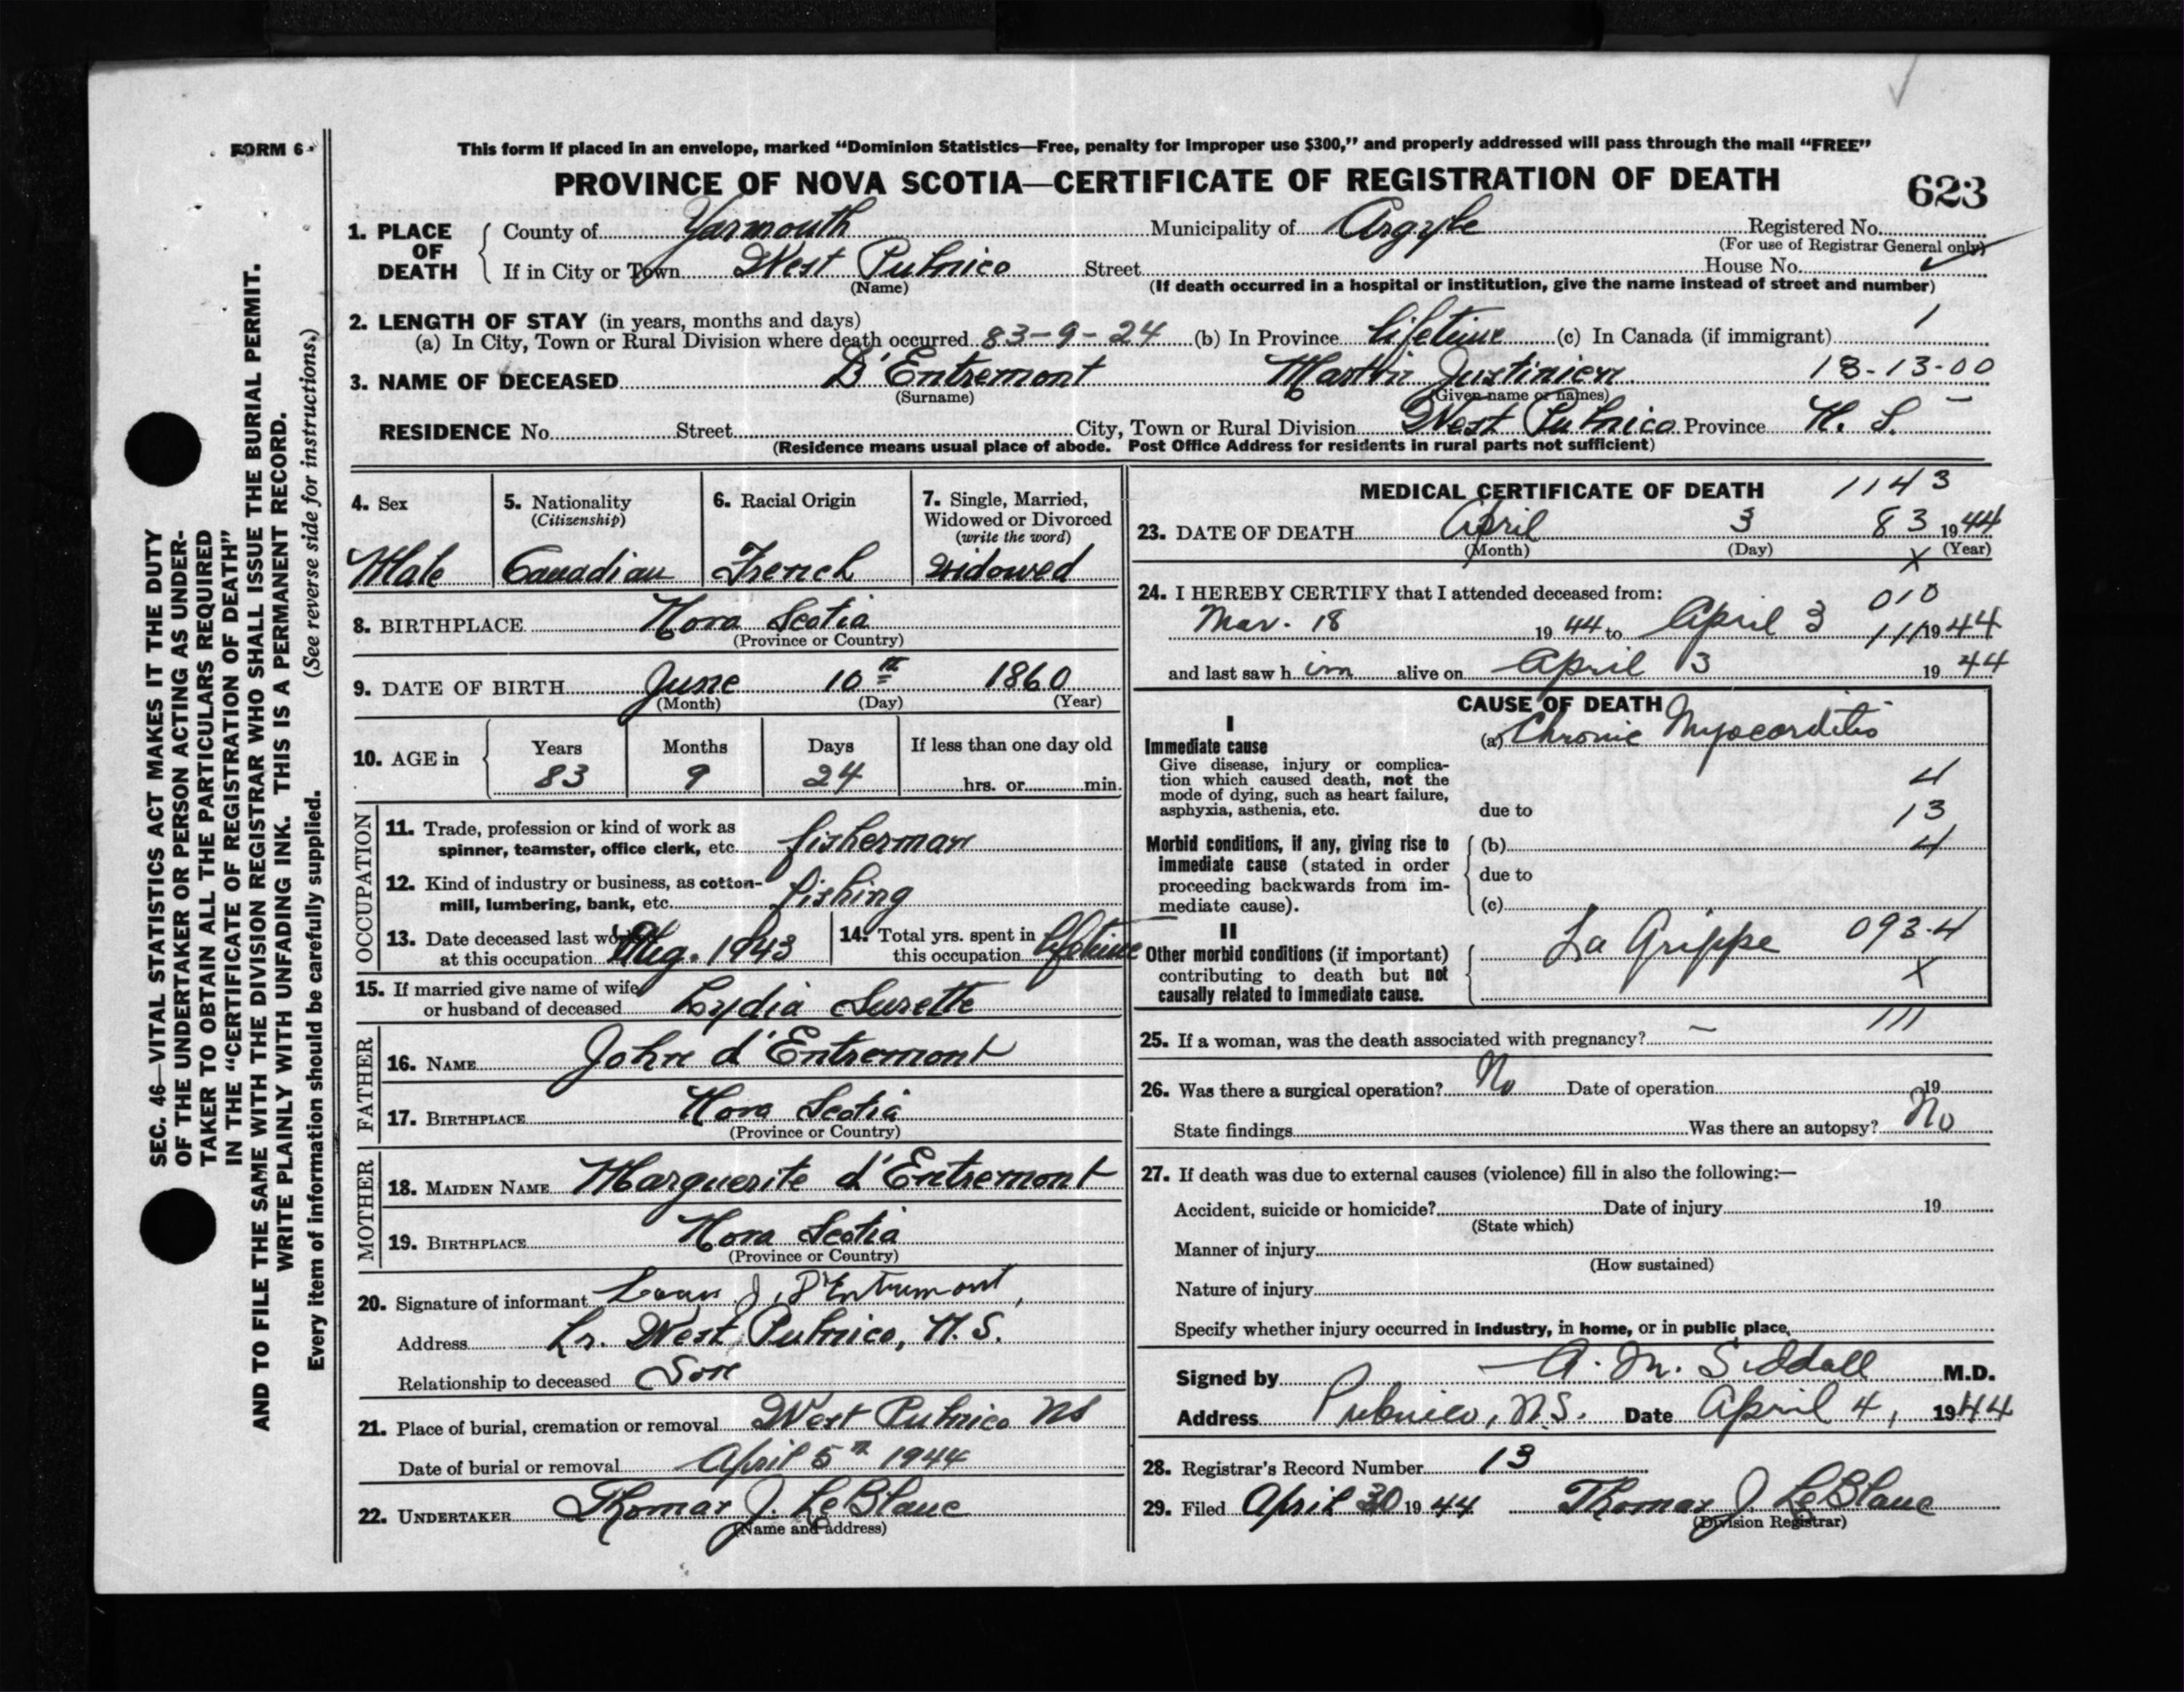 FORM 6
This form if placed in an envelope, marked “Dominion Statistics—Free, penalty for improper use $300,” and properly addressed will pass through the mail “FREE”
PROVINCE OF NOVA SCOTIA—CERTIFICATE OF REGISTRATION OF DEATH 623
1. PLACE OF DEATH County of Yarmouth Municipality of Argyle Registered No.
(For use of Registrar General only)
If in City or Town West Pubnico Street House No.
(Name) (If death occurred in a hospital or institution, give the name instead of street and number)
2. LENGTH OF STAY (in years, months and days)
(a) In City, Town or Rural Division where death occurred 83-9-24 (b) In Province lifetime (c) In Canada (if immigrant) 1
3. NAME OF DECEASED D'Entremont Martin Justinien 18-13-00
(Surname) (Given name or names)
RESIDENCE No. Street City, Town or Rural Division West Pubnico Province N. S.
(Residence means usual place of abode. Post Office Address for residents in rural parts not sufficient)
4. Sex
Male
5. Nationality
(Citizenship)
Canadian
6. Racial Origin
French
7. Single, Married,
Widowed or Divorced
(write the word)
Widowed
8. BIRTHPLACE Nova Scotia
(Province or Country)
9. DATE OF BIRTH June 10th 1860
(Month) (Day) (Year)
10. AGE in Years Months Days If less than one day old
83 9 24 hrs. or min.
OCCUPATION
11. Trade, profession or kind of work as
spinner, teamster, office clerk, etc. fisherman
12. Kind of industry or business, as cotton-
mill, lumbering, bank, etc. fishing
13. Date deceased last worked
at this occupation Aug. 1943
14. Total yrs. spent in
this occupation lifetime
15. If married give name of wife
or husband of deceased Lydia Surette
FATHER
16. NAME John d'Entremont
17. BIRTHPLACE Nova Scotia
(Province or Country)
MOTHER
18. MAIDEN NAME Marguerite d'Entremont
19. BIRTHPLACE Nova Scotia
(Province or Country)
20. Signature of informant J. D'Entremont,
Address Lr. West Pubnico, N. S.
Relationship to deceased Son
21. Place of burial, cremation or removal West Pubnico NS
Date of burial or removal April 5th 1944
22. UNDERTAKER Thomas J. LeBlanc
(Name and address)
MEDICAL CERTIFICATE OF DEATH 1143
23. DATE OF DEATH April 3 83 1944
(Month) (Day) (Year)
X
24. I HEREBY CERTIFY that I attended deceased from: 010
Mar. 18 1944 to April 3 111 1944
and last saw him alive on April 3 1944
CAUSE OF DEATH
I
Immediate cause (a) Chronic Myocarditis
Give disease, injury or complica-
tion which caused death, not the 4
mode of dying, such as heart failure,
asphyxia, asthenia, etc. due to 13
Morbid conditions, if any, giving rise to (b) 4
immediate cause (stated in order
proceeding backwards from im- due to
mediate cause). (c)
II
Other morbid conditions (if important) La Grippe 093.4
contributing to death but not X
causally related to immediate cause.
111
25. If a woman, was the death associated with pregnancy? —
26. Was there a surgical operation? No Date of operation 19
State findings Was there an autopsy? No
27. If death was due to external causes (violence) fill in also the following:—
Accident, suicide or homicide? Date of injury 19
(State which)
Manner of injury
(How sustained)
Nature of injury
Specify whether injury occurred in industry, in home, or in public place,
Signed by A. M. Siddall M.D.
Address Pubnico, N.S. Date April 4, 1944
28. Registrar's Record Number 13
29. Filed April 30 1944 Thomas J. LeBlanc
(Division Registrar)
SEC. 46—VITAL STATISTICS ACT MAKES IT THE DUTY
OF THE UNDERTAKER OR PERSON ACTING AS UNDER-
TAKER TO OBTAIN ALL THE PARTICULARS REQUIRED
IN THE “CERTIFICATE OF REGISTRATION OF DEATH”
AND TO FILE THE SAME WITH THE DIVISION REGISTRAR WHO SHALL ISSUE THE BURIAL PERMIT.
WRITE PLAINLY WITH UNFADING INK. THIS IS A PERMANENT RECORD.
Every item of information should be carefully supplied. (See reverse side for instructions.)